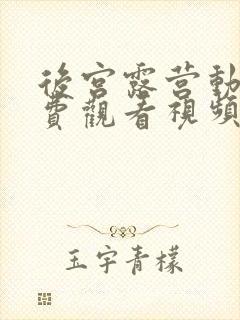 後宮露营動
費觀看視頻
玉宇青檬